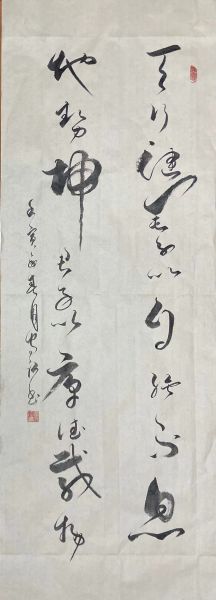 天行健君子以自强不息
地势坤君子以厚德载物
壬寅年春月